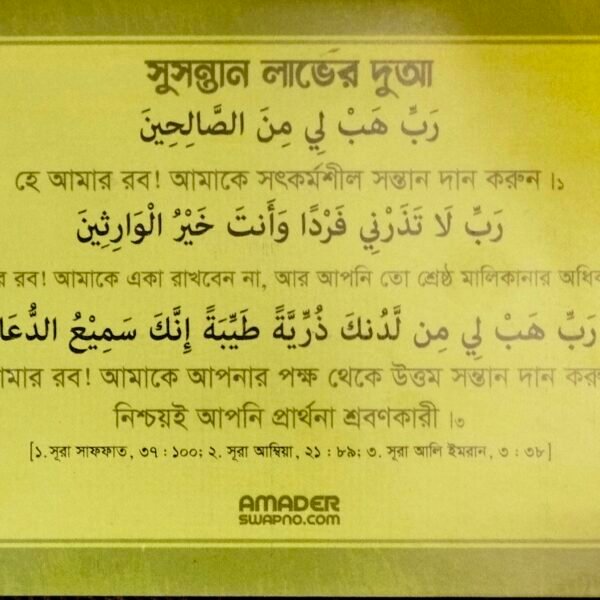 সুসন্তান লাভের দুআ
رَبِّ هَبْ لِي مِنَ الصَّالِحِينَ
হে আমার রব! আমাকে সৎকর্মশীল সন্তান দান করুন।১
رَبِّ لَا تَذَرْنِي فَرْدًا وَأَنتَ خَيْرُ الْوَارِثِينَ
রব! আমাকে একা রাখবেন না, আর আপনি তো শ্রেষ্ঠ মালিকানার
رَبِّ هَبْ لِي مِن لَّدُنكَ ذُرِّيَّةً طَيِّبَةً إِنَّكَ سَمِيْعُ
রব! আমাকে আপনার পক্ষ থেকে উত্তম সন্তান দান
নিশ্চয়ই আপনি প্রার্থনা শ্রবণকারী।৩
[১. সূরা সাফফাত, ৩৭ : ১০০; ২. সূরা আম্বিয়া, ২১ : ৮৯; ৩. সূরা আলি ইমরান, ৩ : ৩৮]
AMADER
SWAPNO.COM